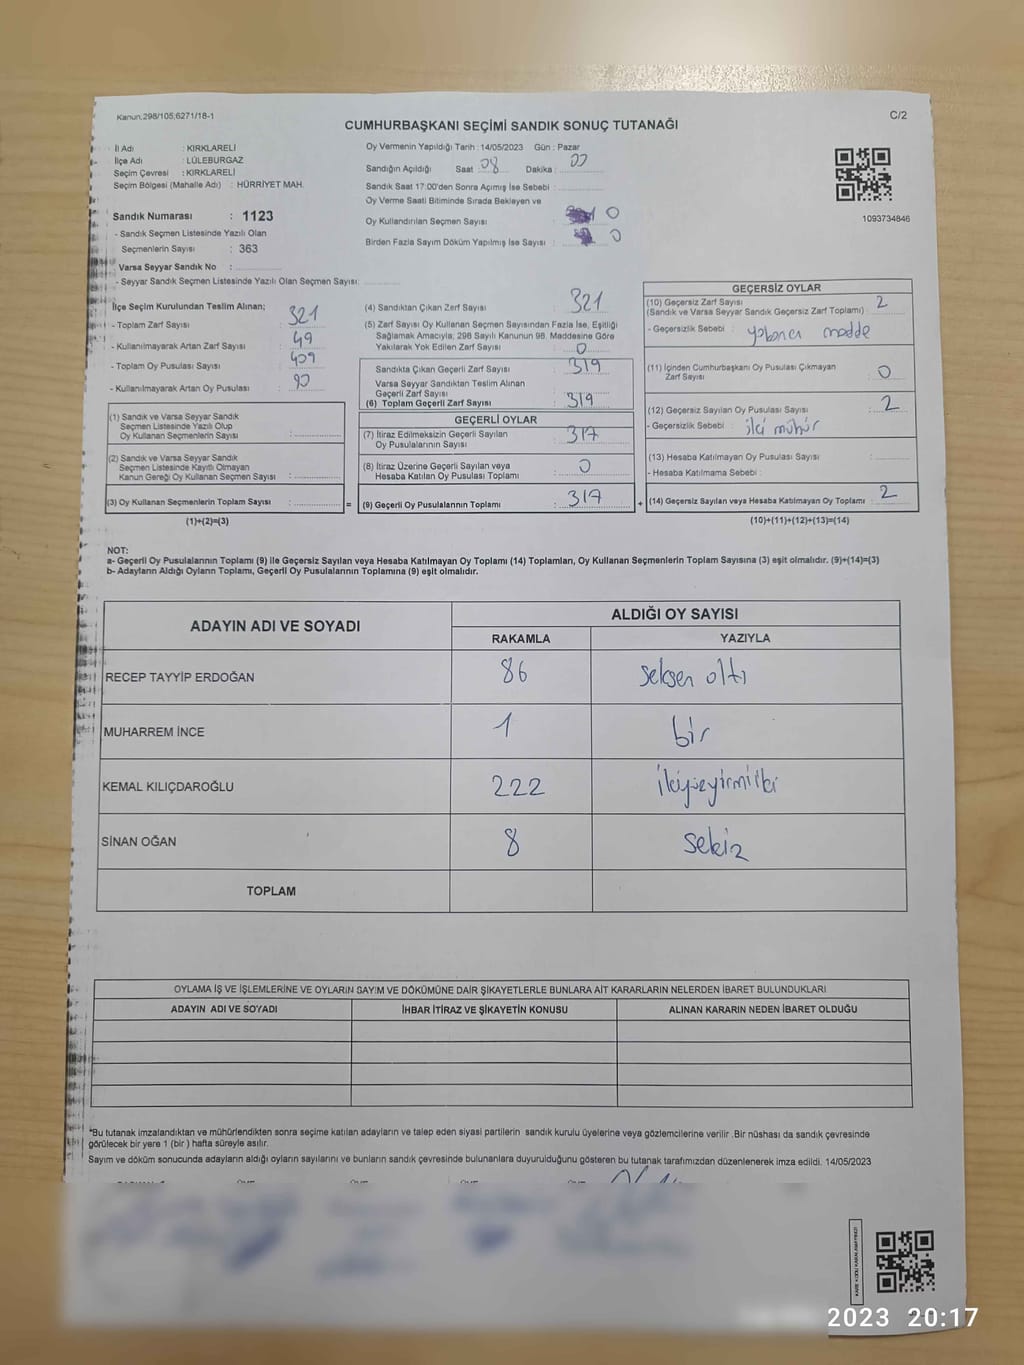 Kanun,298/105,6271/18-1
C/2
CUMHURBAŞKANI SEÇİMİ SANDIK SONUÇ TUTANAĞI
İl Adı : KIRKLARELİ
İlçe Adı : LÜLEBURGAZ
Seçim Çevresi : KIRKLARELİ
Seçim Bölgesi (Mahalle Adı) : HÜRRİYET MAH.
Sandık Numarası : 1123
- Sandık Seçmen Listesinde Yazılı Olan
Seçmenlerin Sayısı : 363
Varsa Seyyar Sandık No :
- Seyyar Sandık Seçmen Listesinde Yazılı Olan Seçmen Sayısı:
Oy Vermenin Yapıldığı Tarih : 14/05/2023 Gün : Pazar
Sandığın Açıldığı Saat 08 Dakika : 00
Sandık Saat 17.00'den Sonra Açımış İse Sebebi :
Oy Verme Saati Bitiminde Sırada Bekleyen ve
Oy Kullandırılan Seçmen Sayısı : 0
Birden Fazla Sayım Döküm Yapılmış İse Sayısı : 0
1093734846
İlçe Seçim Kurulundan Teslim Alınan;
- Toplam Zarf Sayısı : 321
- Kullanılmayarak Artan Zarf Sayısı : 49
- Toplam Oy Pusulası Sayısı : 409
- Kullanılmayarak Artan Oy Pusulası : 90
(1) Sandık ve Varsa Seyyar Sandık
Seçmen Listesinde Yazılı Olup
Oy Kullanan Seçmenlerin Sayısı :
(2) Sandık ve Varsa Seyyar Sandık
Seçmen Listesinde Kayıtlı Olmayan
Kanun Gereği Oy Kullanan Seçmen Sayısı :
(3) Oy Kullanan Seçmenlerin Toplam Sayısı : =
(1)+(2)=(3)
(4) Sandıktan Çıkan Zarf Sayısı : 321
(5) Zarf Sayısı Oy Kullanan Seçmen Sayısından Fazla İse, Eşitliği
Sağlamak Amacıyla, 298 Sayılı Kanunun 98. Maddesine Göre
Yakılarak Yok Edilen Zarf Sayısı : 0
Sandıkta Çıkan Geçerli Zarf Sayısı : 319
Varsa Seyyar Sandıktan Teslim Alınan
Geçerli Zarf Sayısı :
(6) Toplam Geçerli Zarf Sayısı : 319
GEÇERLİ OYLAR
(7) İtiraz Edilmeksizin Geçerli Sayılan
Oy Pusulalarının Sayısı : 317
(8) İtiraz Üzerine Geçerli Sayılan veya
Hesaba Katılan Oy Pusulası Toplamı : 0
(9) Geçerli Oy Pusulalarının Toplamı : 317 +
GEÇERSİZ OYLAR
(10) Geçersiz Zarf Sayısı : 2
(Sandık ve Varsa Seyyar Sandık Geçersiz Zarf Toplamı)
- Geçersizlik Sebebi : yabancı madde
(11) İçinden Cumhurbaşkanı Oy Pusulası Çıkmayan
Zarf Sayısı : 0
(12) Geçersiz Sayılan Oy Pusulası Sayısı : 2
- Geçersizlik Sebebi : iki mühür
(13) Hesaba Katılmayan Oy Pusulası Sayısı :
- Hesaba Katılmama Sebebi :
(14) Geçersiz Sayılan veya Hesaba Katılmayan Oy Toplamı : 2
(10)+(11)+(12)+(13)=(14)
NOT:
a- Geçerli Oy Pusulalarının Toplamı (9) ile Geçersiz Sayılan veya Hesaba Katılmayan Oy Toplamı (14) Toplamları, Oy Kullanan Seçmenlerin Toplam Sayısına (3) eşit olmalıdır. (9)+(14)=(3)
b- Adayların Aldığı Oyların Toplamı, Geçerli Oy Pusulalarının Toplamına (9) eşit olmalıdır.
ADAYIN ADI VE SOYADI
ALDIĞI OY SAYISI
RAKAMLA YAZIYLA
RECEP TAYYİP ERDOĞAN 86 seksen altı
MUHARREM İNCE 1 bir
KEMAL KILIÇDAROĞLU 222 ikiyüzyirmiiki
SİNAN OĞAN 8 sekiz
TOPLAM
OYLAMA İŞ VE İŞLEMLERİNE VE OYLARIN SAYIM VE DÖKÜMÜNE DAİR ŞİKAYETLERLE BUNLARA AİT KARARLARIN NELERDEN İBARET BULUNDUKLARI
ADAYIN ADI VE SOYADI İHBAR İTİRAZ VE ŞİKAYETİN KONUSU ALINAN KARARIN NEDEN İBARET OLDUĞU
*Bu tutanak imzalandıktan ve mühürlendikten sonra seçime katılan adayların ve talep eden siyasi partilerin sandık kurulu üyelerine veya gözlemcilerine verilir .Bir nüshası da sandık çevresinde
görülecek bir yere 1 (bir ) hafta süreyle asılır.
Sayım ve döküm sonucunda adayların aldığı oyların sayılarını ve bunların sandık çevresinde bulunanlara duyurulduğunu gösteren bu tutanak tarafımızdan düzenlenerek imza edildi. 14/05/2023
2023 20:17